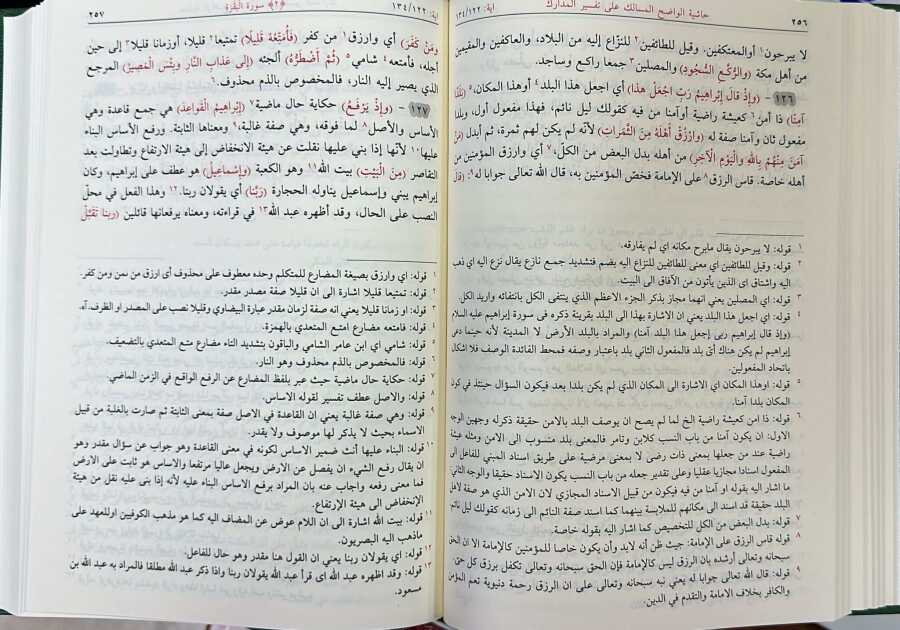 ٢٥٦ حاشية الواضح المسالك على تفسير المدارك آية: ١٣٤/١٢٢
لا يبرحون١ أو المعتكفين. وقيل للطائفين٢ للنزّاع إليه من البلاد، والعاكفين والمقيمين
من أهل مكة (والرُّكَّعِ السُّجُودِ) والمصلين٣ جمعا راكع وساجد.
١٢٦ - (وإِذْ قالَ إِبْراهِيمُ رَبِّ اجْعَلْ هذا) أي اجعل هذا البلد٤ أوهذا المكان،٥ (بَلَدًا
آمِنًا) ذا أمن٦ كعيشة راضية أوآمنا من فيه كقولك ليل نائم، فهذا مفعول أول، وبلدا
مفعول ثان وآمنا صفة له (وارْزُقْ أَهْلَهُ مِنَ الثَّمَراتِ) لأنّه لم يكن لهم ثمرة، ثم أبدل (مَنْ
آمَنَ مِنْهُمْ بِاللَّهِ والْيَوْمِ الْآخِرِ) من أهله بدل البعض من الكلّ،٧ أي وارزق المؤمنين من
أهله خاصة. قاس الرزق٨ على الإمامة فخصّ المؤمنين به، قال الله تعالى جوابا له٩ (قالَ
١ قوله: لا يبرحون يقال مابرح مكانه اي لم يفارقه.
٢ قوله: وقيل للطائفين اي معنى للطائفين للنزاع اليه بضم فتشديد جمع نازع يقال نزع اليه اي ذهب
اليه واشتاق اي الذين يأتون من الآفاق الى البيت.
٣ قوله: اي المصلين يعني انهما مجاز بذكر الجزء الاعظم الذي ينتفى الكل بانتفائه واريد الكل.
٤ قوله: اي اجعل هذا البلد يعني ان الاشارة بهذا الى البلد بقرينة ذكره فى سورة إبراهيم عليه السلام
(وإذ قال إبراهيم ربى إجعل هذا البلد آمنا) والمراد بالبلد الأرض لا المدينة لأنه حينما دعى
إبراهيم لم يكن هناك أىّ بلد فالمفعول الثاني بلد باعتبار وصفه فمحط الفائدة الوصف فلا اشكال
باتحاد المفعولين.
٥ قوله: اوهذا المكان اي الاشارة الى المكان الذي لم يكن بلدا بعد فيكون السؤال حينئذ في كون
المكان بلدا آمنا.
٦ قوله: ذا امن كعيشة راضية الخ لما لم يصح ان يوصف البلد بالامن حقيقة ذكر وله وجهين الوجه
الاول: ان يكون آمنا من باب النسب كلابن وتامر فالمعنى بلد منسوب الى الامن ومثله عيشة
راضية عند من جعلها بمعنى ذات رضى لا بمعنى مرضية على طريق اسناد المبني للفاعل الى
المفعول اسنادا مجازيا عقليا وعلى تقدير جعله من باب النسب يكون الاسناد حقيقا والوجه الثاني:
ما اشار اليه بقوله او آمنا من فيه فيكون من قبيل الاسناد المجازي لان الامن الذي هو صفة لاهل
البلد حقيقة قد اسند الى مكانهم للملابسة بينهما كما اسند صفة النائم الى زمانه كقولك ليل نائم.
٧ قوله: بدل البعض من الكل للتخصيص كما اشار اليه بقوله خاصة.
٨ قوله قاس الرزق على الإمامة: حيث ظن أنه لابد وأن يكون خاصا للمؤمنين كالإمامة الا ان الحق
سبحانه وتعالى أرشده بان الرزق ليس كالإمامة فإن الحق سبحانه وتعالى تكفل برزق كل حي.
٩ قوله: قال الله تعالى جوابا له يعني نبه سبحانه وتعالى على ان الرزق رحمة دنيوية تعم المؤمن
والكافر بخلاف الامامة والتقدم في الدين.
آية: ١٣٤/١٢٢ ﴿٢﴾ سورة البَقَرَةِ ٢٥٧
ومَنْ كَفَرَ) أي وارزق١ من كفر (فَأُمَتِّعُهُ قَلِيلًا) تمتيعا٢ قليلا، أوزمانا قليلا٣ إلى حين
أجله، فأمتعه٤ شامي٥ (ثُمَّ أَضْطَرُّهُ) ألجئه (إِلى عَذابِ النَّارِ وبِئْسَ الْمَصِيرُ) المرجع
الذي يصير إليه النار، فالمخصوص بالذم محذوف.٦
١٢٧ - (وإِذْ يَرْفَعُ) حكاية حال ماضية٧ (إِبْراهِيمُ الْقَواعِدَ) هي جمع قاعدة وهي
الأساس والأصل٨ لما فوقه، وهي صفة غالبة،٩ ومعناها الثابتة. ورفع الأساس البناء
عليها١٠ لأنّها إذا بني عليها نقلت عن هيئة الانخفاض إلى هيئة الارتفاع وتطاولت بعد
التقاصر (مِنَ الْبَيْتِ) بيت الله١١ وهو الكعبة (وإِسْماعِيلُ) هو عطف على إبراهيم، وكان
إبراهيم يبني وإسماعيل يناوله الحجارة (رَبَّنا) أي يقولان ربنا.١٢ وهذا الفعل في محلّ
النصب على الحال، وقد أظهره عبد الله١٣ في قراءته، ومعناه يرفعانها قائلين (ربنا تَقَبَّلْ
١ قوله: اي وارزق بصيغة المضارع للمتكلم وحده معطوف على محذوف أى ارزق من ءمن ومن كفر.
٢ قوله: تمتيعا قليلا اشارة الى ان قليلا صفة مصدر مقدر.
٣ قوله: او زمانا قليلا يعني انه صفة لزمان مقدر عبارة البيضاوي وقليلا نصب على المصدر او الظرف. آه.
٤ قوله: فامتعه مضارع امتع المتعدي بالهمزة.
٥ قوله: شامي اي ابن عامر الشامي والباقون بتشديد التاء مضارع متع المتعدي بالتضعيف.
٦ قوله: فالمخصوص بالذم محذوف وهو النار.
٧ قوله: حكاية حال ماضية حيث عبر بلفظ المضارع عن الرفع الواقع في الزمن الماضي.
٨ قوله: والاصل عطف تفسير لقوله الاساس.
٩ قوله: وهي صفة غالبة يعني ان القاعدة في الاصل صفة بمعنى الثابتة ثم صارت بالغلبة من قبيل
الاسماء بحيث لا يذكر لها موصوف ولا يقدر.
١٠ قوله: البناء عليها أنث ضمير الاساس لكونه في معنى القاعدة وهو جواب عن سؤال مقدر وهو
ان يقال رفع الشيء ان يفصل عن الارض ويجعل عاليا مرتفعا والاساس هو ثابت على الارض
فما معنى رفعه واجاب عنه بان المراد برفع الاساس البناء عليه لأنه إذا بنى عليه نقل من هيئة
الإنخفاض الى هيئة الإرتفاع.
١١ قوله: بيت الله اشارة الى ان اللام عوض عن المضاف اليه كما هو مذهب الكوفيين اوللعهد على
ماذهب اليه البصريون.
١٢ قوله: اي يقولان ربنا يعني ان القول هنا مقدر وهو حال للفاعل.
١٣ قوله: وقد اظهره عبد الله اى قرأ عبد الله يقولان ربنا واذا ذكر عبد الله مطلقا فالمراد به عبد الله بن
مسعود.